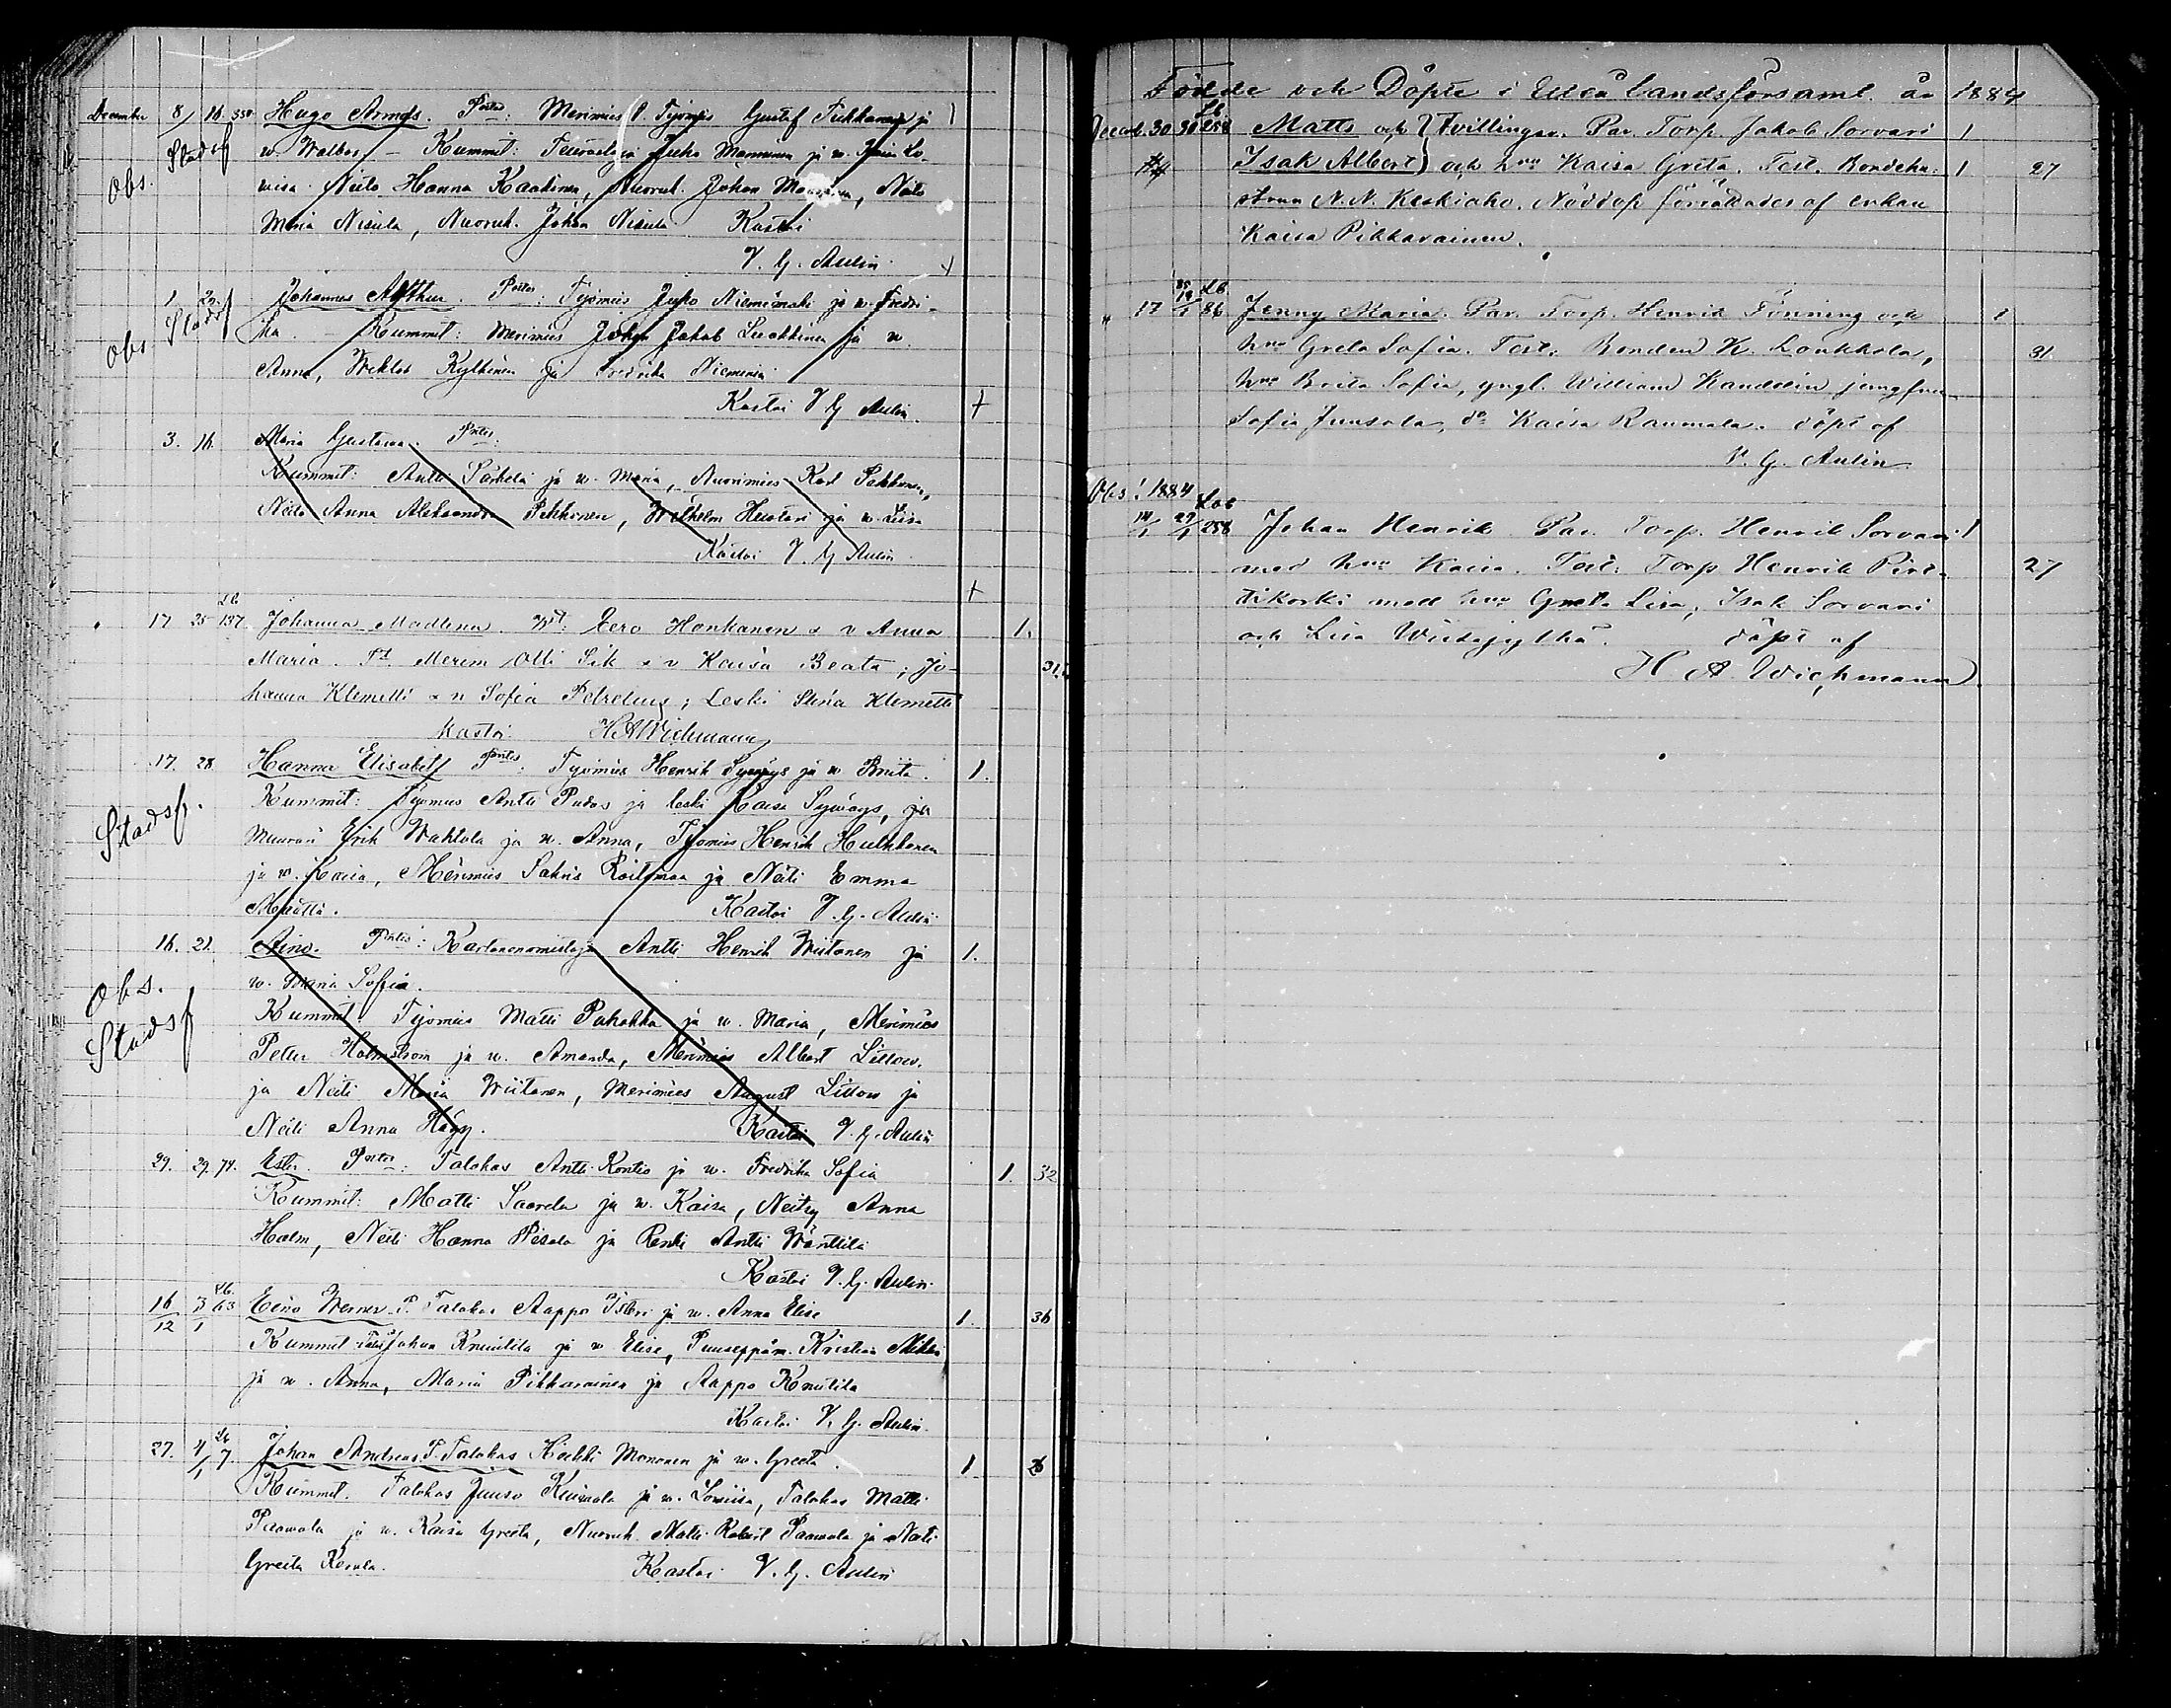 December 8/ 16. 350. Hugo Armas. P:tes: Merimies l. Työmies Gustaf Tukkanen ja 1
Obs. Stadsf w. Walbor. – Kummit: Juho Manninen ja w. Lo-
visa. Neito Hanna Kaakinen, Nuoruk. Johan, Neito
Maria Nisula, Nuoruk. Johan Nisula Kastoi
V. G. Aulin. +
1 20. Johannes Arthur. P:tes: Työmies Juho Niemimaki ja w. Fredri-
Obs. Stadsf ka. – Kummit: Merimies Johan Jakob Luokkinen ja w.
Anna, Wiktor Kylkinen ja Fredrika Niemenia
Kastoi V G Aulin. +
3. 16. Maria Gustava. P:tes:
Kummit: Antti Särkelä ja w. Maria, Nuorimies Karl Pekkonen,
Neito Anna Aleksandra Pekkonen, Wilhelm Huotari ja w. Liisa
Kastoi V G Aulin.
+
Lb
17 25 137 Johanna Madlena. Eero Honkanen & v Anna 1.
Maria. Merim Olli Sik & v Kaisa Beata; Jo- 31
hanna Klemetti & v Sofia Petrelius; Leski Stina Klemetti
Kastoi HAWichmann
17. 28 Hanna Elisabet P:tes: Työmies Henrik Sywäys ja w Brita. 1.
Stadsf. Kummit: Työmies Antti Pudas ja leski Kaisa Sywäys, ja
Muurari Erik Wahtola ja w. Anna, Työmies Henrik Hulkkonen
ja w. Kaisa, Merimies Sakris Raitamaa ja Neiti Emma
Määttä. Kastoi V. G. Aulin
16. 21. Aino. P:tes: Kartanonomistaja Antti Henrik Wiitanen ja 1.
Obs. w. Maria Sofia.
Stadsf Kummit: Työmies Matti Pahakka ja w. Maria, Merimies
Petter Holmstrom ja w. Amanda, Merimies Albert Littow.
ja Neiti Maria Wiitanen, Merimies August Littow ja
Neiti Anna Hägg. Kastoi V. G. Aulin
29. 29. 74. Ester. P:tes: Talokas Antti Kontio ja w. Fredrika Sofia 1. 32
Kummit: Matti Saarela ja w. Kaisa, Neitsy Anna
Holm, Neiti Hanna Pesala ja Renki Antti Wänttilä
Kastoi V. G. Aulin.
Lb.
16/12 3/1 63 Eeno Werner. P. Talokas Aappo Isteri ja w. Anna Elise 1. 36
Kummit Johan Knuutila ja w Elise, Puuseppäm. Kristian
ja w. Anna, Maria Pikkarainen ja Aappo Knuutila
Kastoi V. G. Aulin.
Lb
27. 4/1 7. Johan Andreas P. Talokas Heikki Mononen ja w. Greeta. 1 26
Kummit. Talokas Juuso Kuivala ja w. Lowiisa, Talokas Matti
Paawola ja w. Kaisa Greeta, Nuoruk. Matti Robert Paawola ja Neiti
Greeta Kesula. Kastoi V. G. Aulin
Födde och Döpte i Uleå landsförsaml. år 1884
Lb
Decemb. 30 30 258 Matts och } Tvillingar. Par. Torp. Jakob Sorvari 1
Isak Albert } och h:ru Kaisa Greta. Test. Bondehu- 1 27
strun N. N. Keskiaho. Nöddop förrättades af enkan
Kaisa Pikkarainen.
85 Lb
" 17 18/1 86 Jenny Maria. Par. Torp. Henrik Tönning och 1
h:ru Greta Sofia. Test. Bonden K. Loukkola, 31
h:ru Brita Sofia, yngl. William Kandelin jungfrun
Sofia Junsola, d:o Kaisa Raumala. döpt af
V. G. Aulin
Obs! 1884
Lbb
14/1 27/1 258 Johan Henrik. Par. Torp. Henrik Sorvari 1
med h:ru Kaisa. Test. Torp Henrik Pirt- 27
tikoski med h:ru Greta Lisa, Isak Sorvari
och Lisa Wiitajylhä. döpt af
H A Wichmann.